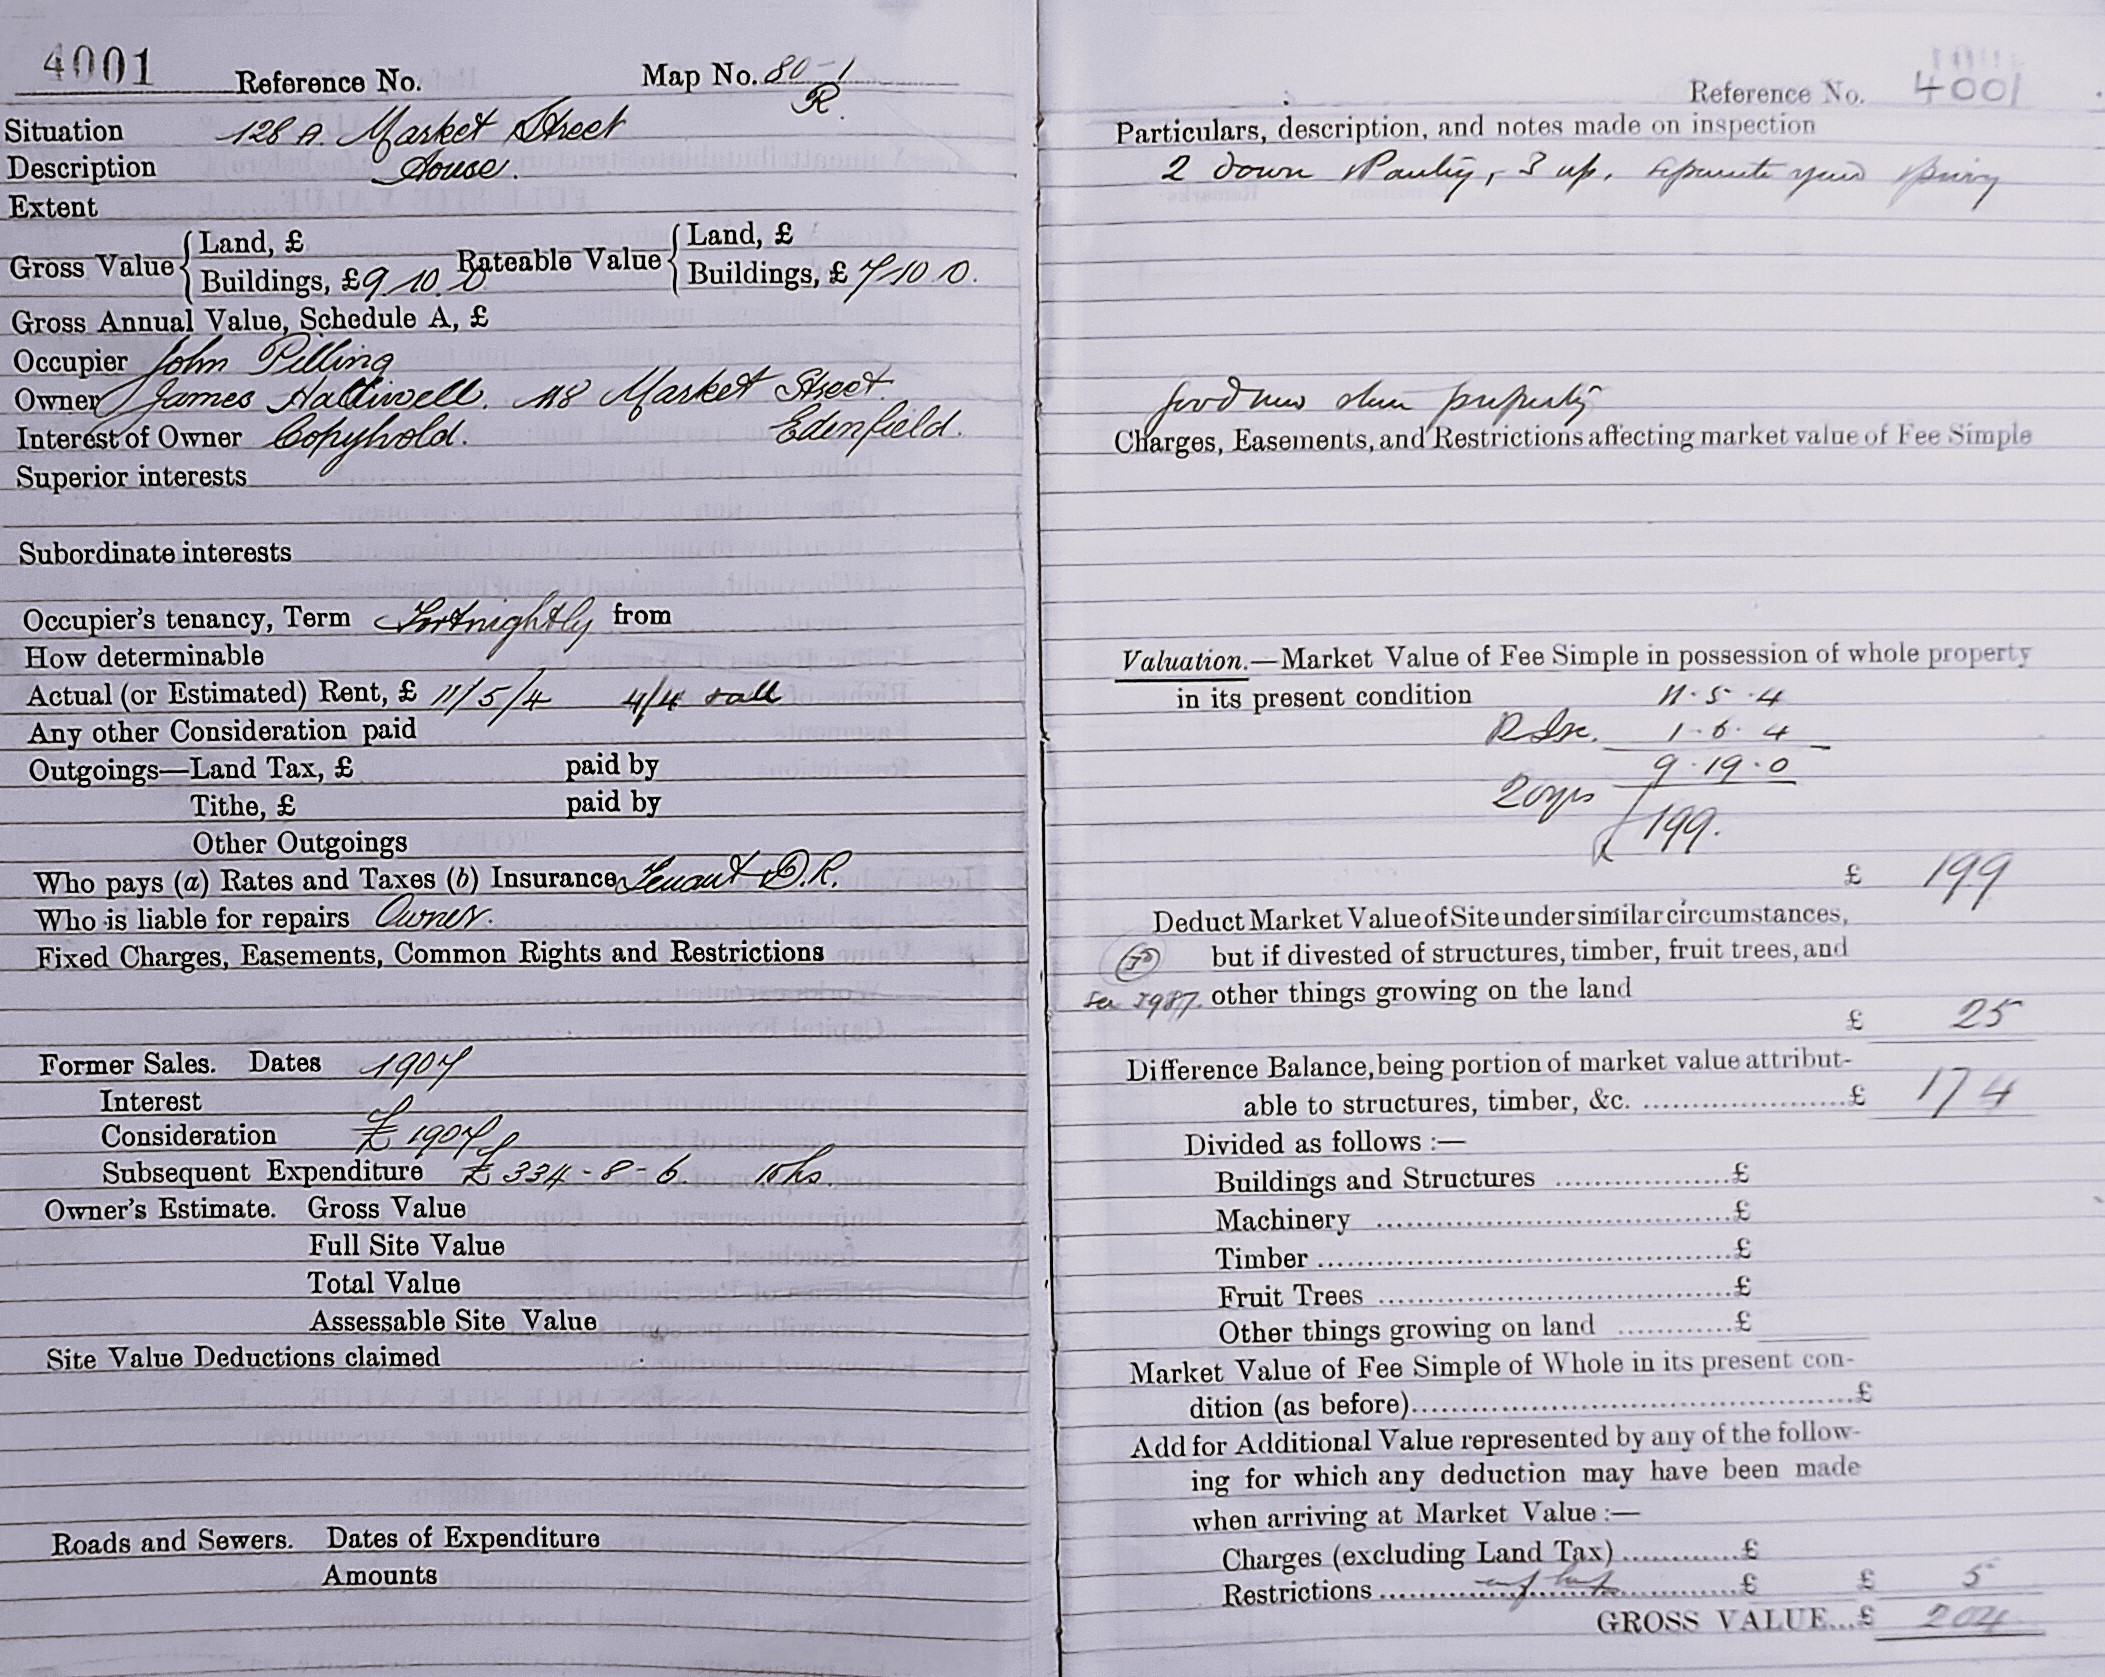 4001 Reference No. Map No. 80-1
R.
Situation 128 A. Market Street
Description House.
Extent
Gross Value { Land, £
Buildings, £ 9. 10. 0
Rateable Value { Land, £
Buildings, £ 7 10 0.
Gross Annual Value, Schedule A, £
Occupier John Pilling
Owner James Halliwell. 118 Market Street.
Interest of Owner Copyhold. Edenfield.
Superior interests
Subordinate interests
Occupier's tenancy, Term Fortnightly from
How determinable
Actual (or Estimated) Rent, £ 11/5/4 4/4
Any other Consideration paid
Outgoings—Land Tax, £ paid by
Tithe, £ paid by
Other Outgoings
Who pays (a) Rates and Taxes (b) Insurance Tenant
Who is liable for repairs Owner.
Fixed Charges, Easements, Common Rights and Restrictions
Former Sales. Dates 1907
Interest
Consideration £ 1907
Subsequent Expenditure £ 334-8-6.
Owner's Estimate. Gross Value
Full Site Value
Total Value
Assessable Site Value
Site Value Deductions claimed
Roads and Sewers. Dates of Expenditure
Amounts
Reference No. 4001
Particulars, description, and notes made on inspection
2 down Pantry, 3 up, separate yard privy
Good new property
Charges, Easements, and Restrictions affecting market value of Fee Simple
Valuation.—Market Value of Fee Simple in possession of whole property
in its present condition 11 . 5 . 4
1 . 6 . 4
9 . 19 . 0
20 yrs
£199.
£ 199
Deduct Market Value of Site under similar circumstances,
but if divested of structures, timber, fruit trees, and
other things growing on the land
£ 25
Difference Balance, being portion of market value attribut-
able to structures, timber, &c. ......................£ 174
Divided as follows :—
Buildings and Structures ....................£
Machinery ....................£
Timber ....................£
Fruit Trees ....................£
Other things growing on land ............£
Market Value of Fee Simple of Whole in its present con-
dition (as before)....................£
Add for Additional Value represented by any of the follow-
ing for which any deduction may have been made
when arriving at Market Value :—
Charges (excluding Land Tax)............£
Restrictions ....................£ £ 5
GROSS VALUE...£ 204